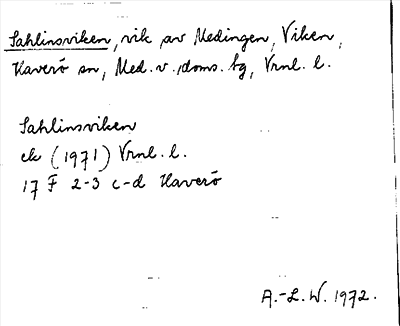 Sahlinsviken, vik av Medingen, Viken,
Haverö sn, Med. v. doms. bg, Vrnl. l.
Sahlinsviken
ek (1971) Vrnl. l.
17 F 2-3 c-d Haverö
A.-L. W. 1972.